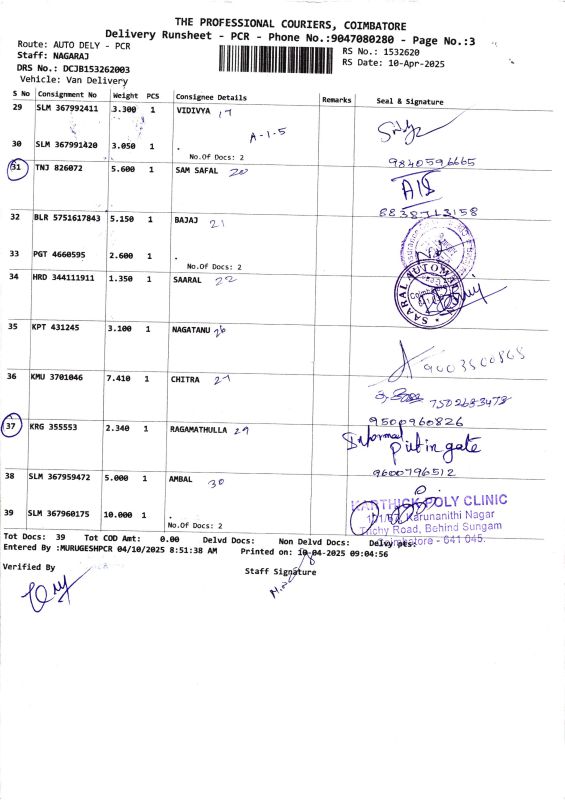 THE PROFESSIONAL COURIERS, COIMBATORE
Delivery Runsheet - PCR - Phone No.:9047080280 - Page No.:3
Route: AUTO DELY - PCR
RS No.: 1532620
Staff: NAGARAJ
RS Date: 10-Apr-2025
DRS No.: DCJB153262003
Vehicle: Van Delivery
S No Consignment No Weight PCS Consignee Details Remarks Seal & Signature
29 SLM 367992411 3.300 1 VIDIVYA 17
A-1-5
30 SLM 367991420 3.050 1 .
No.Of Docs: 2
9840596665
31 TNJ 826072 5.600 1 SAM SAFAL 20
8838713158
32 BLR 5751617843 5.150 1 BAJAJ 21
33 PGT 4660595 2.600 1 .
No.Of Docs: 2
34 HRD 344111911 1.350 1 SAARAL 22
SAARAL AUTOMA
35 KPT 431245 3.100 1 NAGATANU 26
9003500868
36 KMU 3701046 7.410 1 CHITRA 27
7502683478
9500960826
37 KRG 355553 2.340 1 RAGAMATHULLA 29
Informal
put in gate
9600796512
38 SLM 367959472 5.000 1 AMBAL 30
39 SLM 367960175 10.000 1 .
No.Of Docs: 2
KARTHICK POLY CLINIC
Karunanithi Nagar
Trichy Road, Behind Sungam
Coimbatore - 641 045.
Tot Docs: 39 Tot COD Amt: 0.00 Delvd Docs: Non Delvd Docs: Delvy pts:
Entered By :MURUGESHPCR 04/10/2025 8:51:38 AM Printed on: 10-04-2025 09:04:56
Verified By
Staff Signature